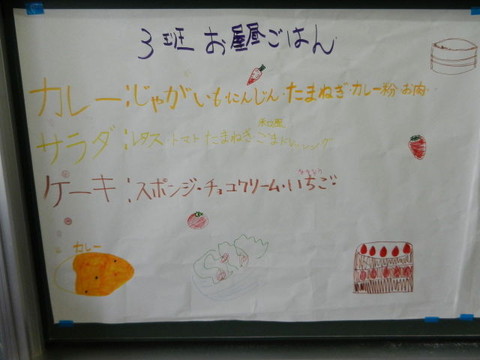 3班 お昼ごはん
カレー:じゃがいも・にんじん・たまねぎ・カレー粉・お肉…
和風
サラダ:レタス・トマト・たまねぎ・ごまドレッシング
ケーキ:スポンジ・チョコクリーム・いちご
カレー